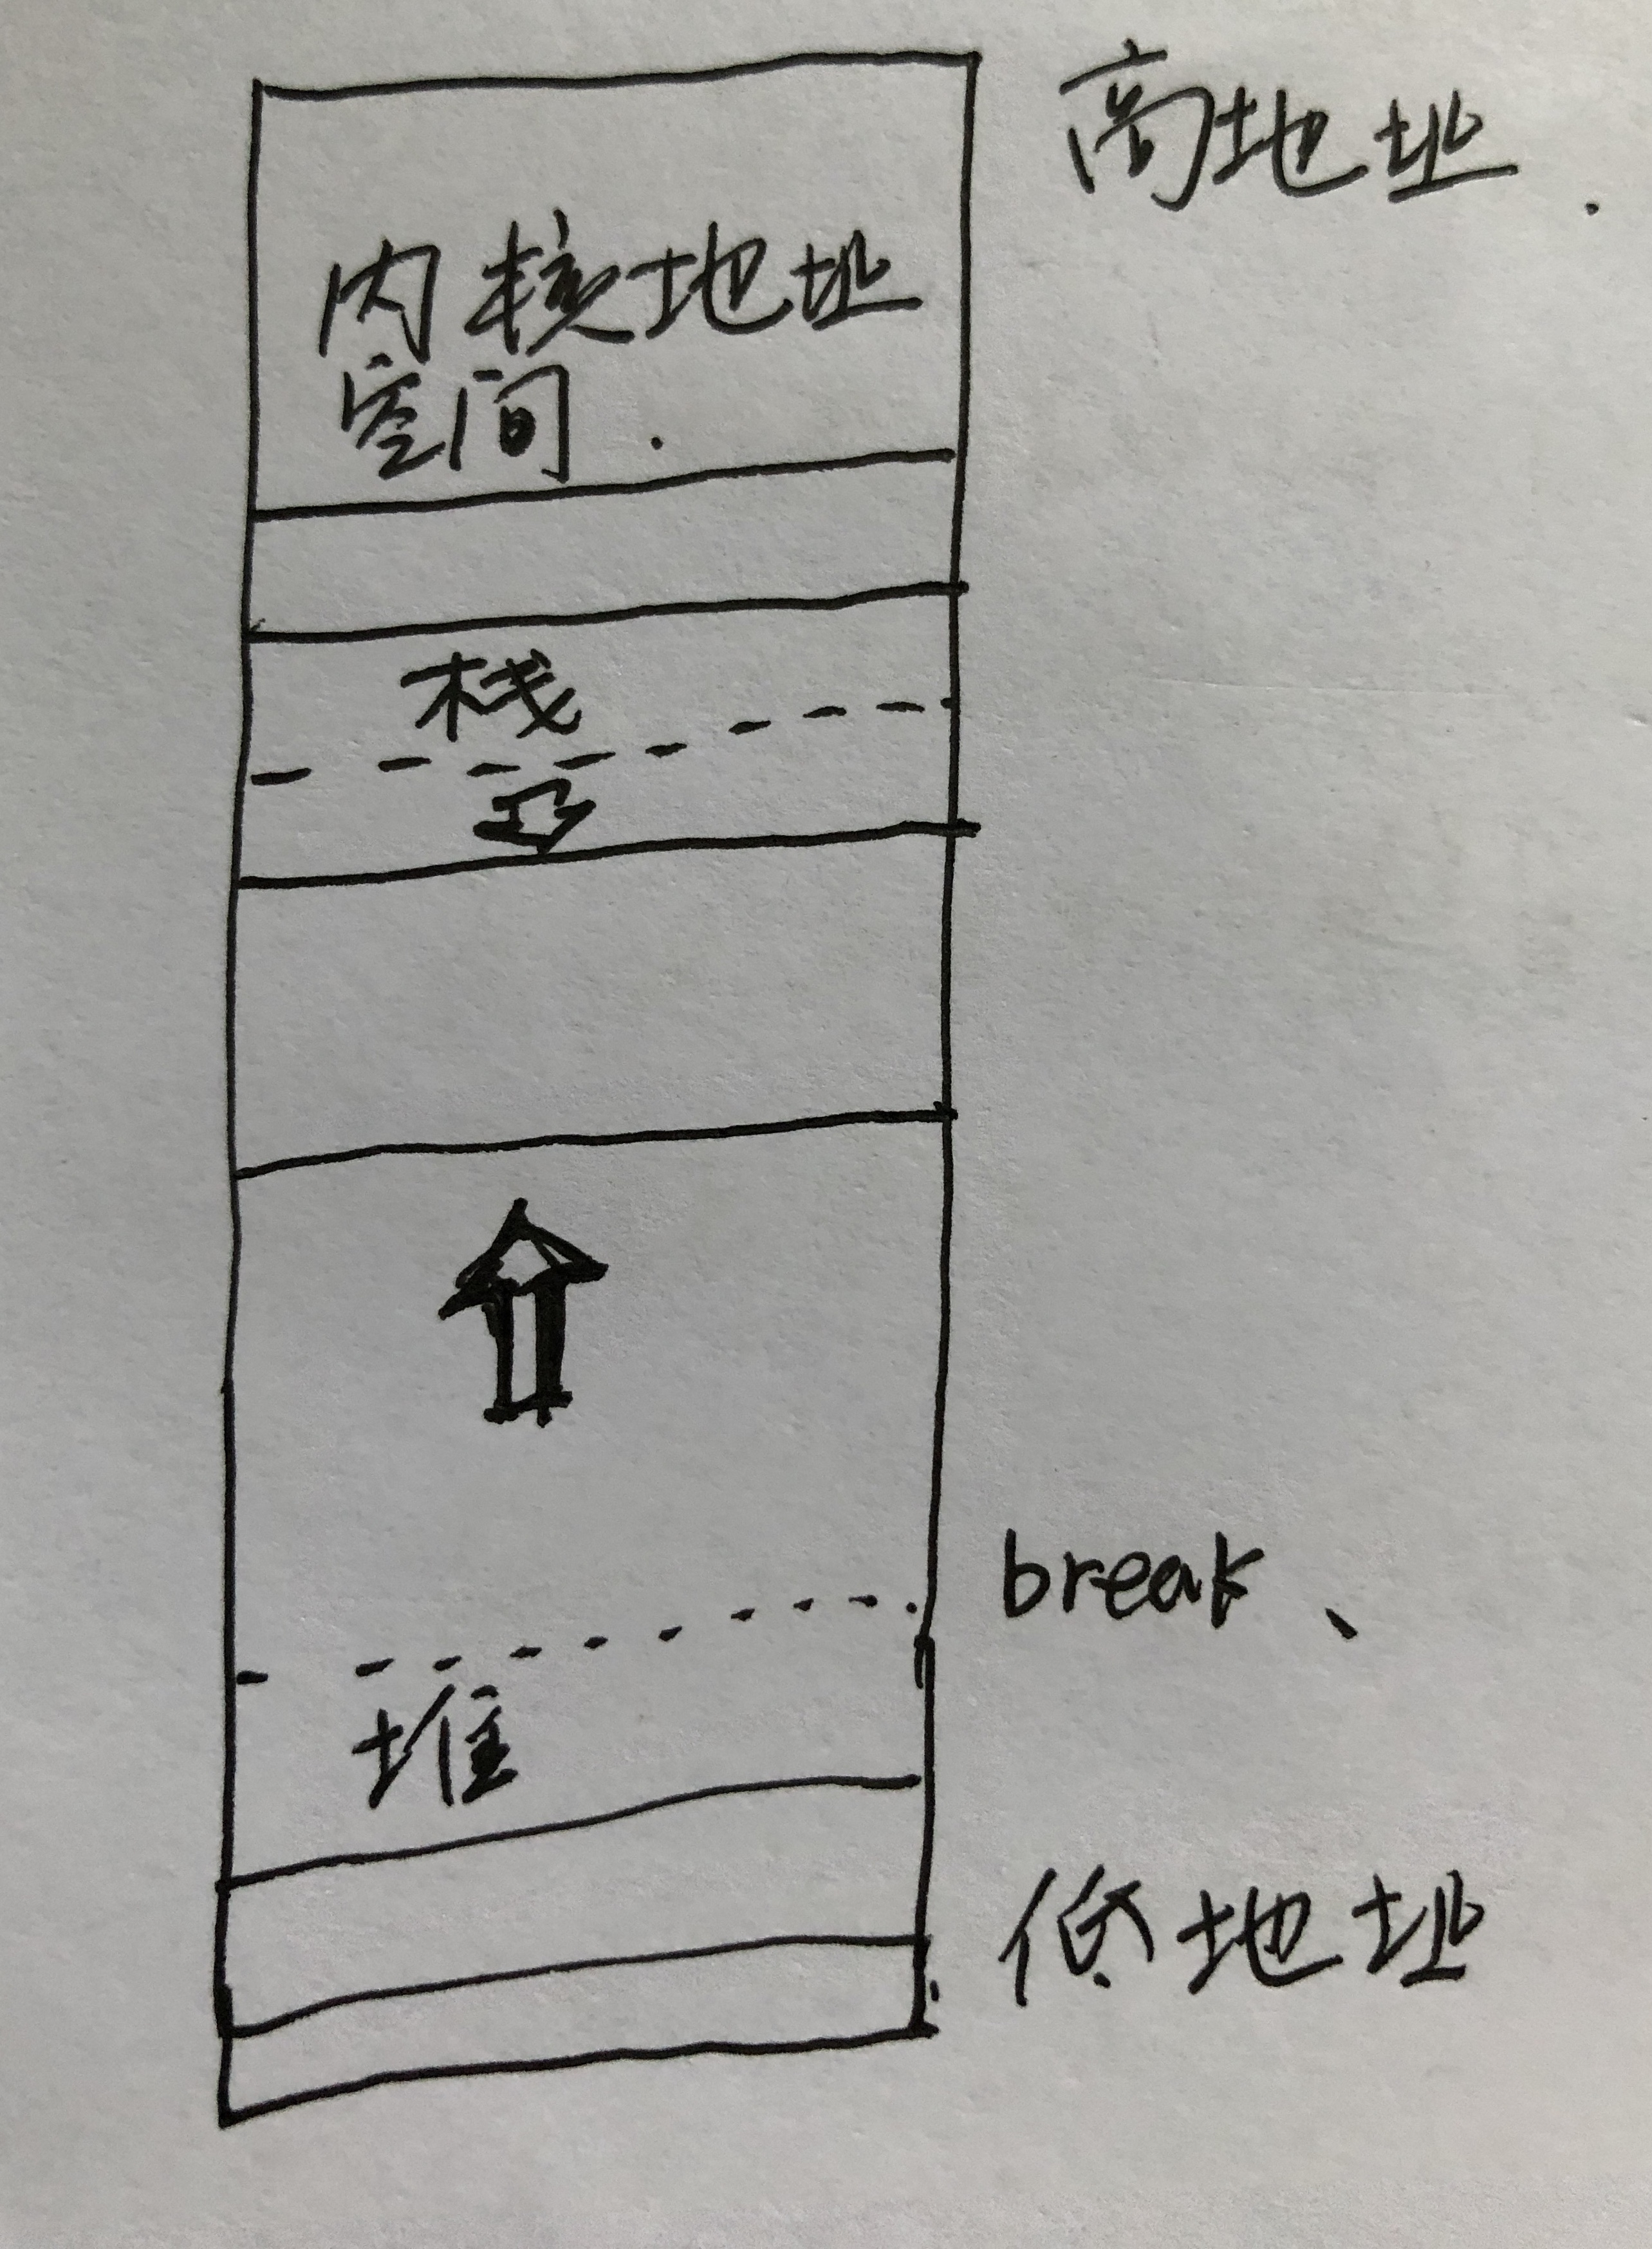 高地址
内核地址
空间.
栈
break、
堆
低地址